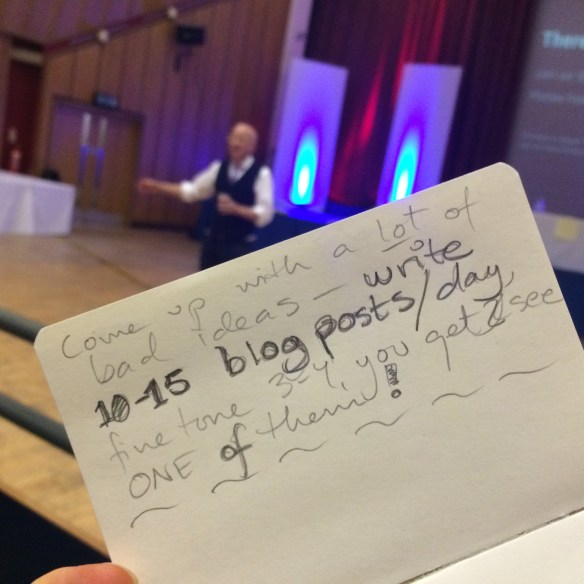 Come up with a lot of
bad ideas – write
10-15 blog posts/day,
fine tone 3-4, you get 2 see
ONE of them!